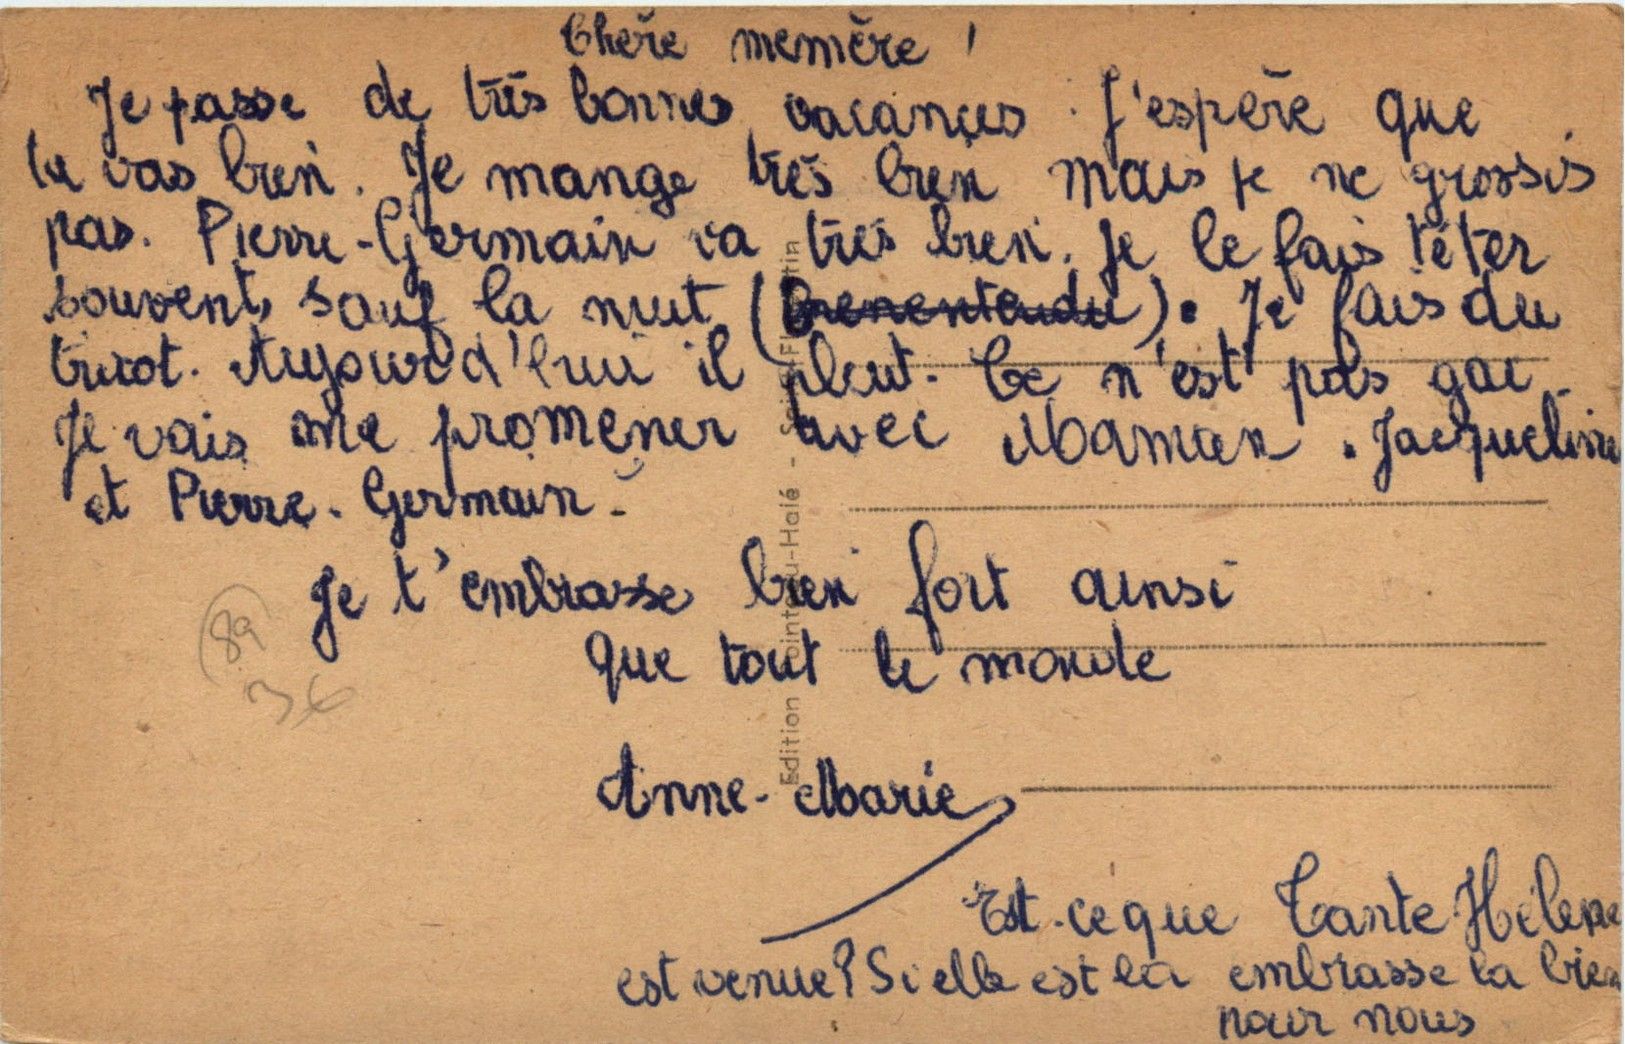 Chère memère !
Je passe de très bonnes vacances. J'espère que
tu vas bien. Je mange très bien mais je ne grossis
pas. Pierre-Germain va très bien. Je le fais têter
souvent, sauf la nuit (bienentendu). Je fais du
tricot. Aujourd'hui il pleut. Ce n'est pas gai.
Je vais me promener avec Maman. Jacqueline
et Pierre-Germain.
Je t'embrasse bien fort ainsi
que tout le monde
Anne-Marie
Est-ce que Tante Hélène
est venue? Si elle est là embrasse la bien
pour nous
89
3€
Edition